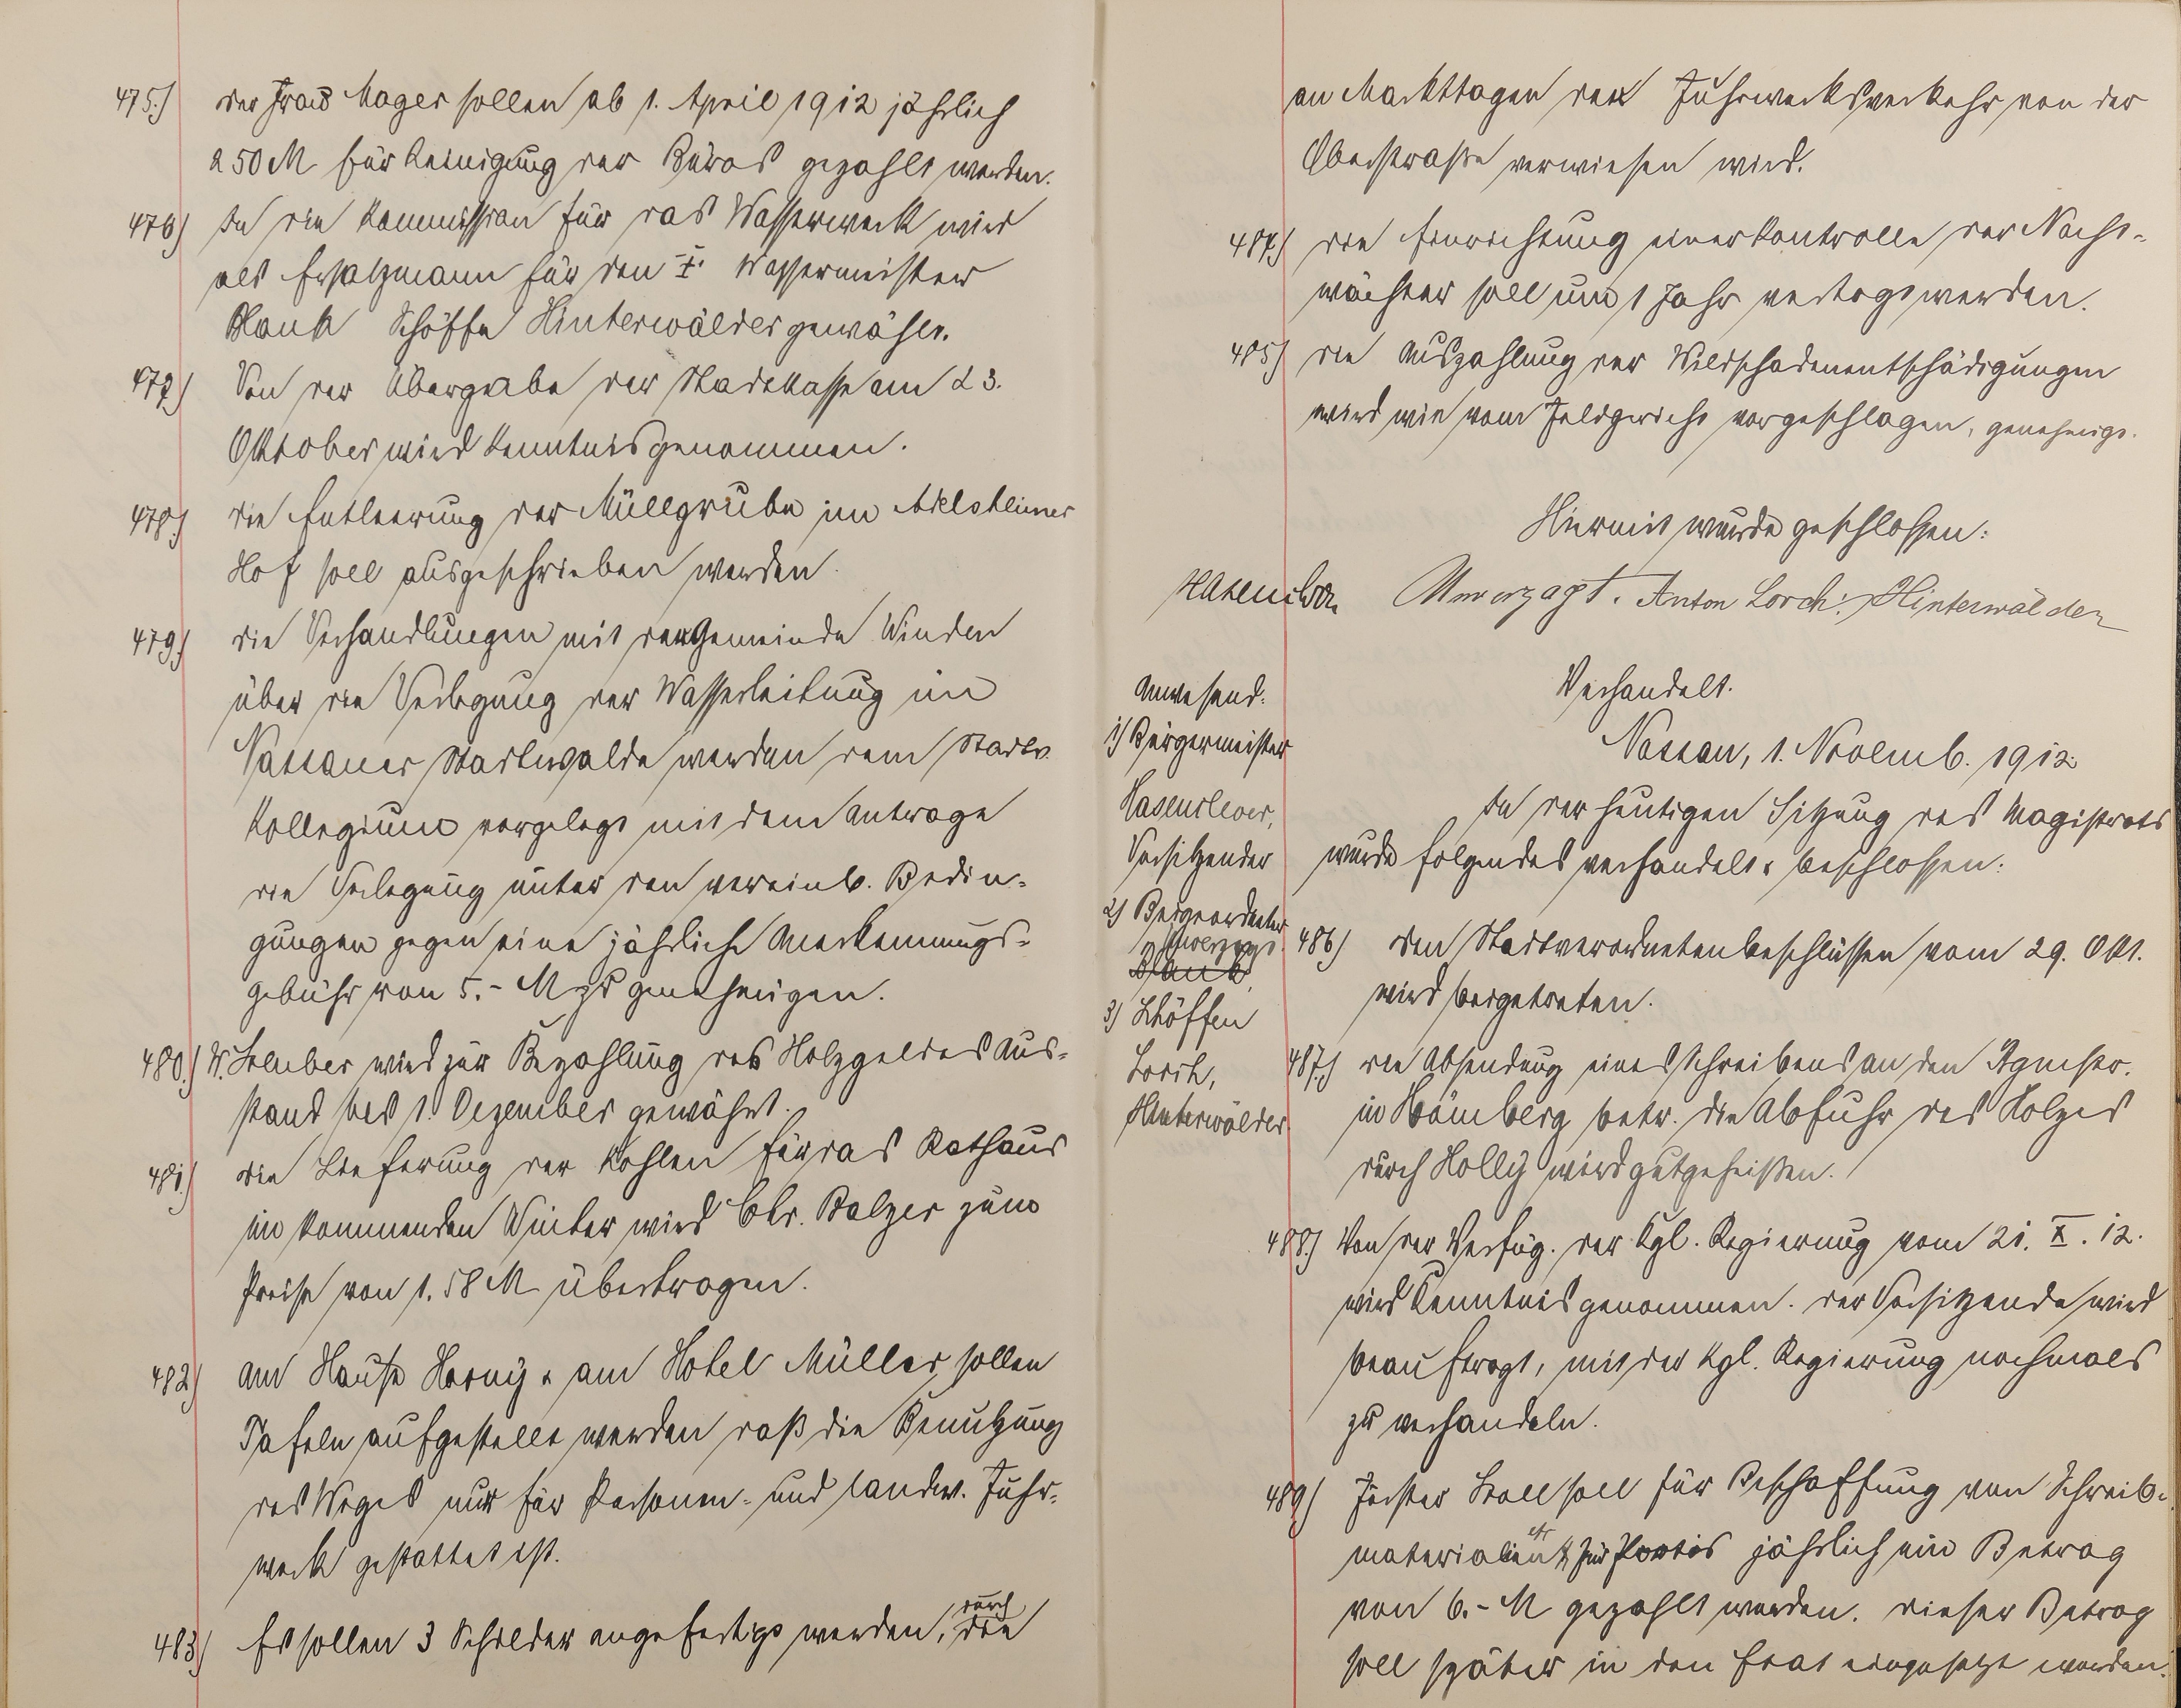 475.) Der Frau Mager sollen ab 1. April 1912 jährlich
250 M für Reinigung der Büros gezahlt werden.
476) In die Kommission für das Wasserwerk wird
als Ersatzmann für den I. Wassermeister
Blank Schöffe Hinterwälder gewählt.
477) Von der Übergabe der Stadtkasse am 23.
Oktober wird Kenntnis genommen.
478.) Die Entleerung der Müllgrube im Adelsheimer
Hof soll ausgeschrieben werden.
479.) Die Verhandlungen mit der Gemeinde Winden
über die Verlegung der Wasserleitung im
Nassauer Stadtwalde werden dem Stadtv.
Kollegium vorgelegt mit dem Antrage
die Verlegung unter den vereinb. Bedin-
gungen gegen eine jährliche Anerkennungs-
gebühr von 5.- M zu genehmigen.
480.) W. wird zur Bezahlung des Holzgeldes Aus-
stand bis 1. Dezember gewährt.
481.) Die Lieferung der Kohlen für das Rathaus
im kommenden Winter wird Chr. Balzer zum
Preise von 1.58 M übertragen.
482) Am Hause Horny u. am Hotel Müller sollen
Tafeln aufgestellt werden daß die Benutzung
des Weges nur für Personen- und landw. Fuhr-
werk gestattet ist.
483) Es sollen 3 Schilder angefertigt werden, durch die
an Markttagen der Fuhrwerksverkehr von der
Oberstraße verwiesen wird.
484.) Die Einrichtung einer Kontrolle der Nacht-
wächter soll um 1 Jahr vertagt werden.
485) Die Auszahlung der Wildschadenentschädigungen
wird wie vom Feldgericht vorgeschlagen, genehmigt.
Hiermit wurde geschlossen:
Hasenclever Unverzagt. Anton Lorch. Hinterwälder
Verhandelt.
Nassau, 1. Novemb. 1912.
Anwesend:
1) Bürgermeister
Hasenclever,
Vorsitzender
2) Beigeordneter
Unverzagt
Blank
3) Schöffen
Lorch,
Hinterwälder
In der heutigen Sitzung des Magistrats
wurde folgendes verhandelt u. beschlossen:
486) Den Stadtverordnetenbeschlüssen vom 29. Okt.
wird beigetreten.
487.) Die Absendung eines Schreibens an den Bgmstr.
in Hömberg betr. die Abfuhr des Holzes
durch Holly wird gutgeheißen.
488.) Von der Verfüg. der Kgl. Regierung vom 21. X. 12.
wird Kenntnis genommen. Der Vorsitzende wird
beauftragt, mit der Kgl. Regierung nochmals
zu verhandeln.
489) Förster Stoll soll für Beschaffung von Schreib-
materialien etc für Portos jährlich ein Betrag
von 6.- M gezahlt werden. Dieser Betrag
soll später in den Etat eingesetzt werden.